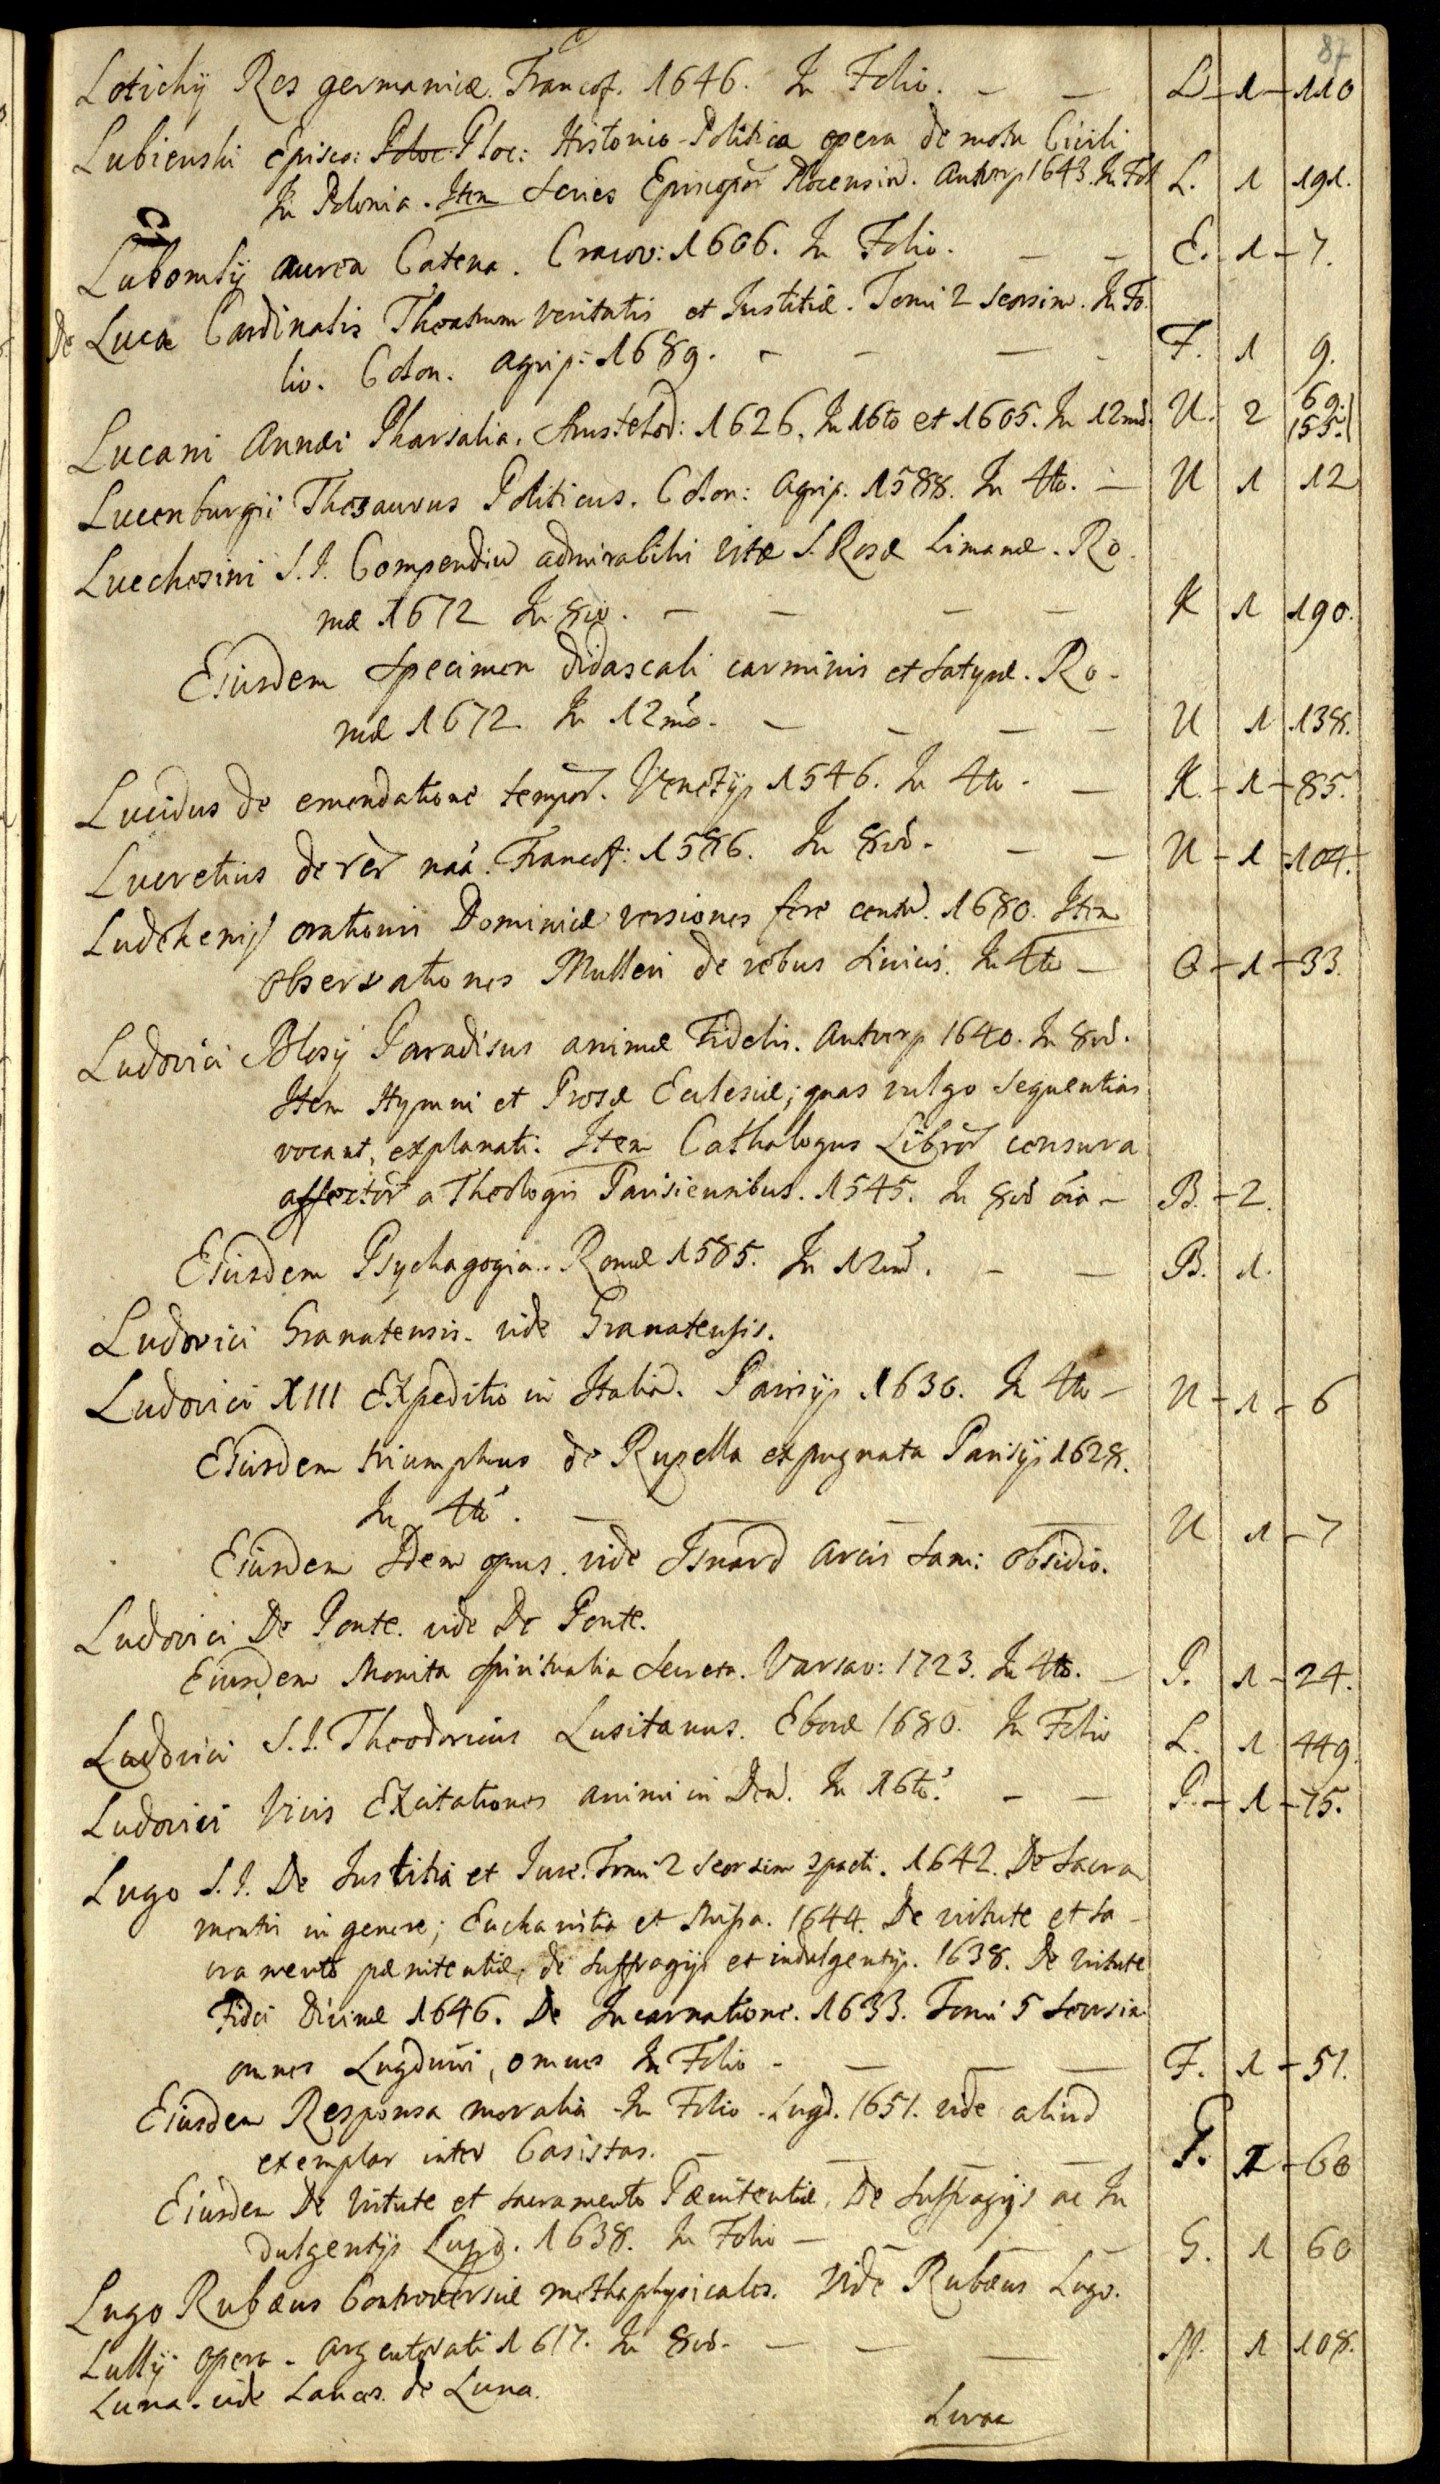 87
Lotichij Res germanicæ. Francof. 1646. In Folio. — — L — 1 — 110
Lubienski Episco: Poloc Ploc: Historico-Politica opera de motu Civili
In Polonia. Item Series Episcopor Plocensiu. Antverp 1643. In Fol L. 1 191.
Lubomlij aurea Catena. Cracov: 1606. In Folio. — — E. — 1 — 7.
De Luca Cardinalis Theatrum veritatis et Justitiæ. Tomi 2 seorsim. In Fo.
lio. Colon. Agrip: 1689. — — — — F. 1 9.
Lucani Annæi Pharsalia. Amstelod: 1626. In 16to et 1605. In 12mo. U. 2 69. 155.
Lucenburgii Thesaurus Politicus. Colon: Agrip. 1588. In 4to. — U 1 12
Lucchesini S.J. Compendiu admirabilis vitæ S. Rosæ Limanæ. Ro.
mæ 1672 In 8vo. — — — — K 1 190.
Eiusdem Specimen didascali carminis et Satyræ. Ro-
mæ 1672 In 12mo. — — — — U 1 138.
Lucidus de emendatione tempor. Venetijs 1546. In 4to. — K. — 1 — 85.
Lucretius de rer naa. Francof: 1586. In 8vo. — — U — 1 — 104.
Ludekenij orationis Dominicæ versiones fere centu. 1680. Item
observationes Mulleri de rebus Sinicis. In 4to — O — 1 — 33.
Ludovici Blosij Paradisus animæ Fidelis. Antverp 1640. In 8vo.
Item Hymni et Prosæ Eclesiæ; quas vulgo sequentias
vocant, explanati. Item Cathalogus Libror censura
affector a Theologis Parisiensibus. 1545. In 8vo oia — B. — 2.
Eiusdem Psychagogia. Romæ 1585. In 12mo. — — B. 1.
Ludovici Granatensis. vide Granatensis.
Ludovici XIII Expeditio in Italia. Parisijs 1630. In 4to — U — 1 — 6
Eiusdem triumphus de Rupella expugnata Parisijs 1628.
In 4to. — — — — U 1 — 7
Eiusdem Idem opus. vide Isnard Arcis Sam: obsidio.
Ludovici De Ponte. vide De Ponte.
Eiusdem Monita Spiritualia Secreta. Varsav: 1723. In 4to. — P. 1 — 24.
Ludovici S.J. Theodoricus Lusitanus. Eboræ 1680. In Folio L. 1 449.
Ludovici Vivis Excitationes animi in Deu. In 16to. — — P. — 1 — 75.
Lugo S.J. De Justitia et Jure. Tomi 2 seorsim 1642. De Sacra
mentis in genere; Eucharistia et Missa. 1644. De virtute et Sa-
cramento pænitentiæ, de Suffragijs et indulgentijs. 1638. De virtute
Fidei Divinæ 1646. De Incarnatione. 1633. Tomi 5 seorsim
omnes Lugduni, omnes In Folio — — — — F. 1 — 51.
Eiusdem Responsa moralia In Folio. Lugd. 1651. vide aliud
exemplar inter Casistas. — — — — G. 1 — 60
Eiusdem De virtute et Sacramento Pænitentiæ, De Suffragijs ac In
dulgentijs Lugd. 1638. In Folio — — — — G. 1 60
Lugo Rubæus Controversiæ methaphysicales. vide Rubæus Lugo.
Lullij opera. Argentorati 1617. In 8vo. — — — M. 1 108.
Luna. vide Lances de Luna.